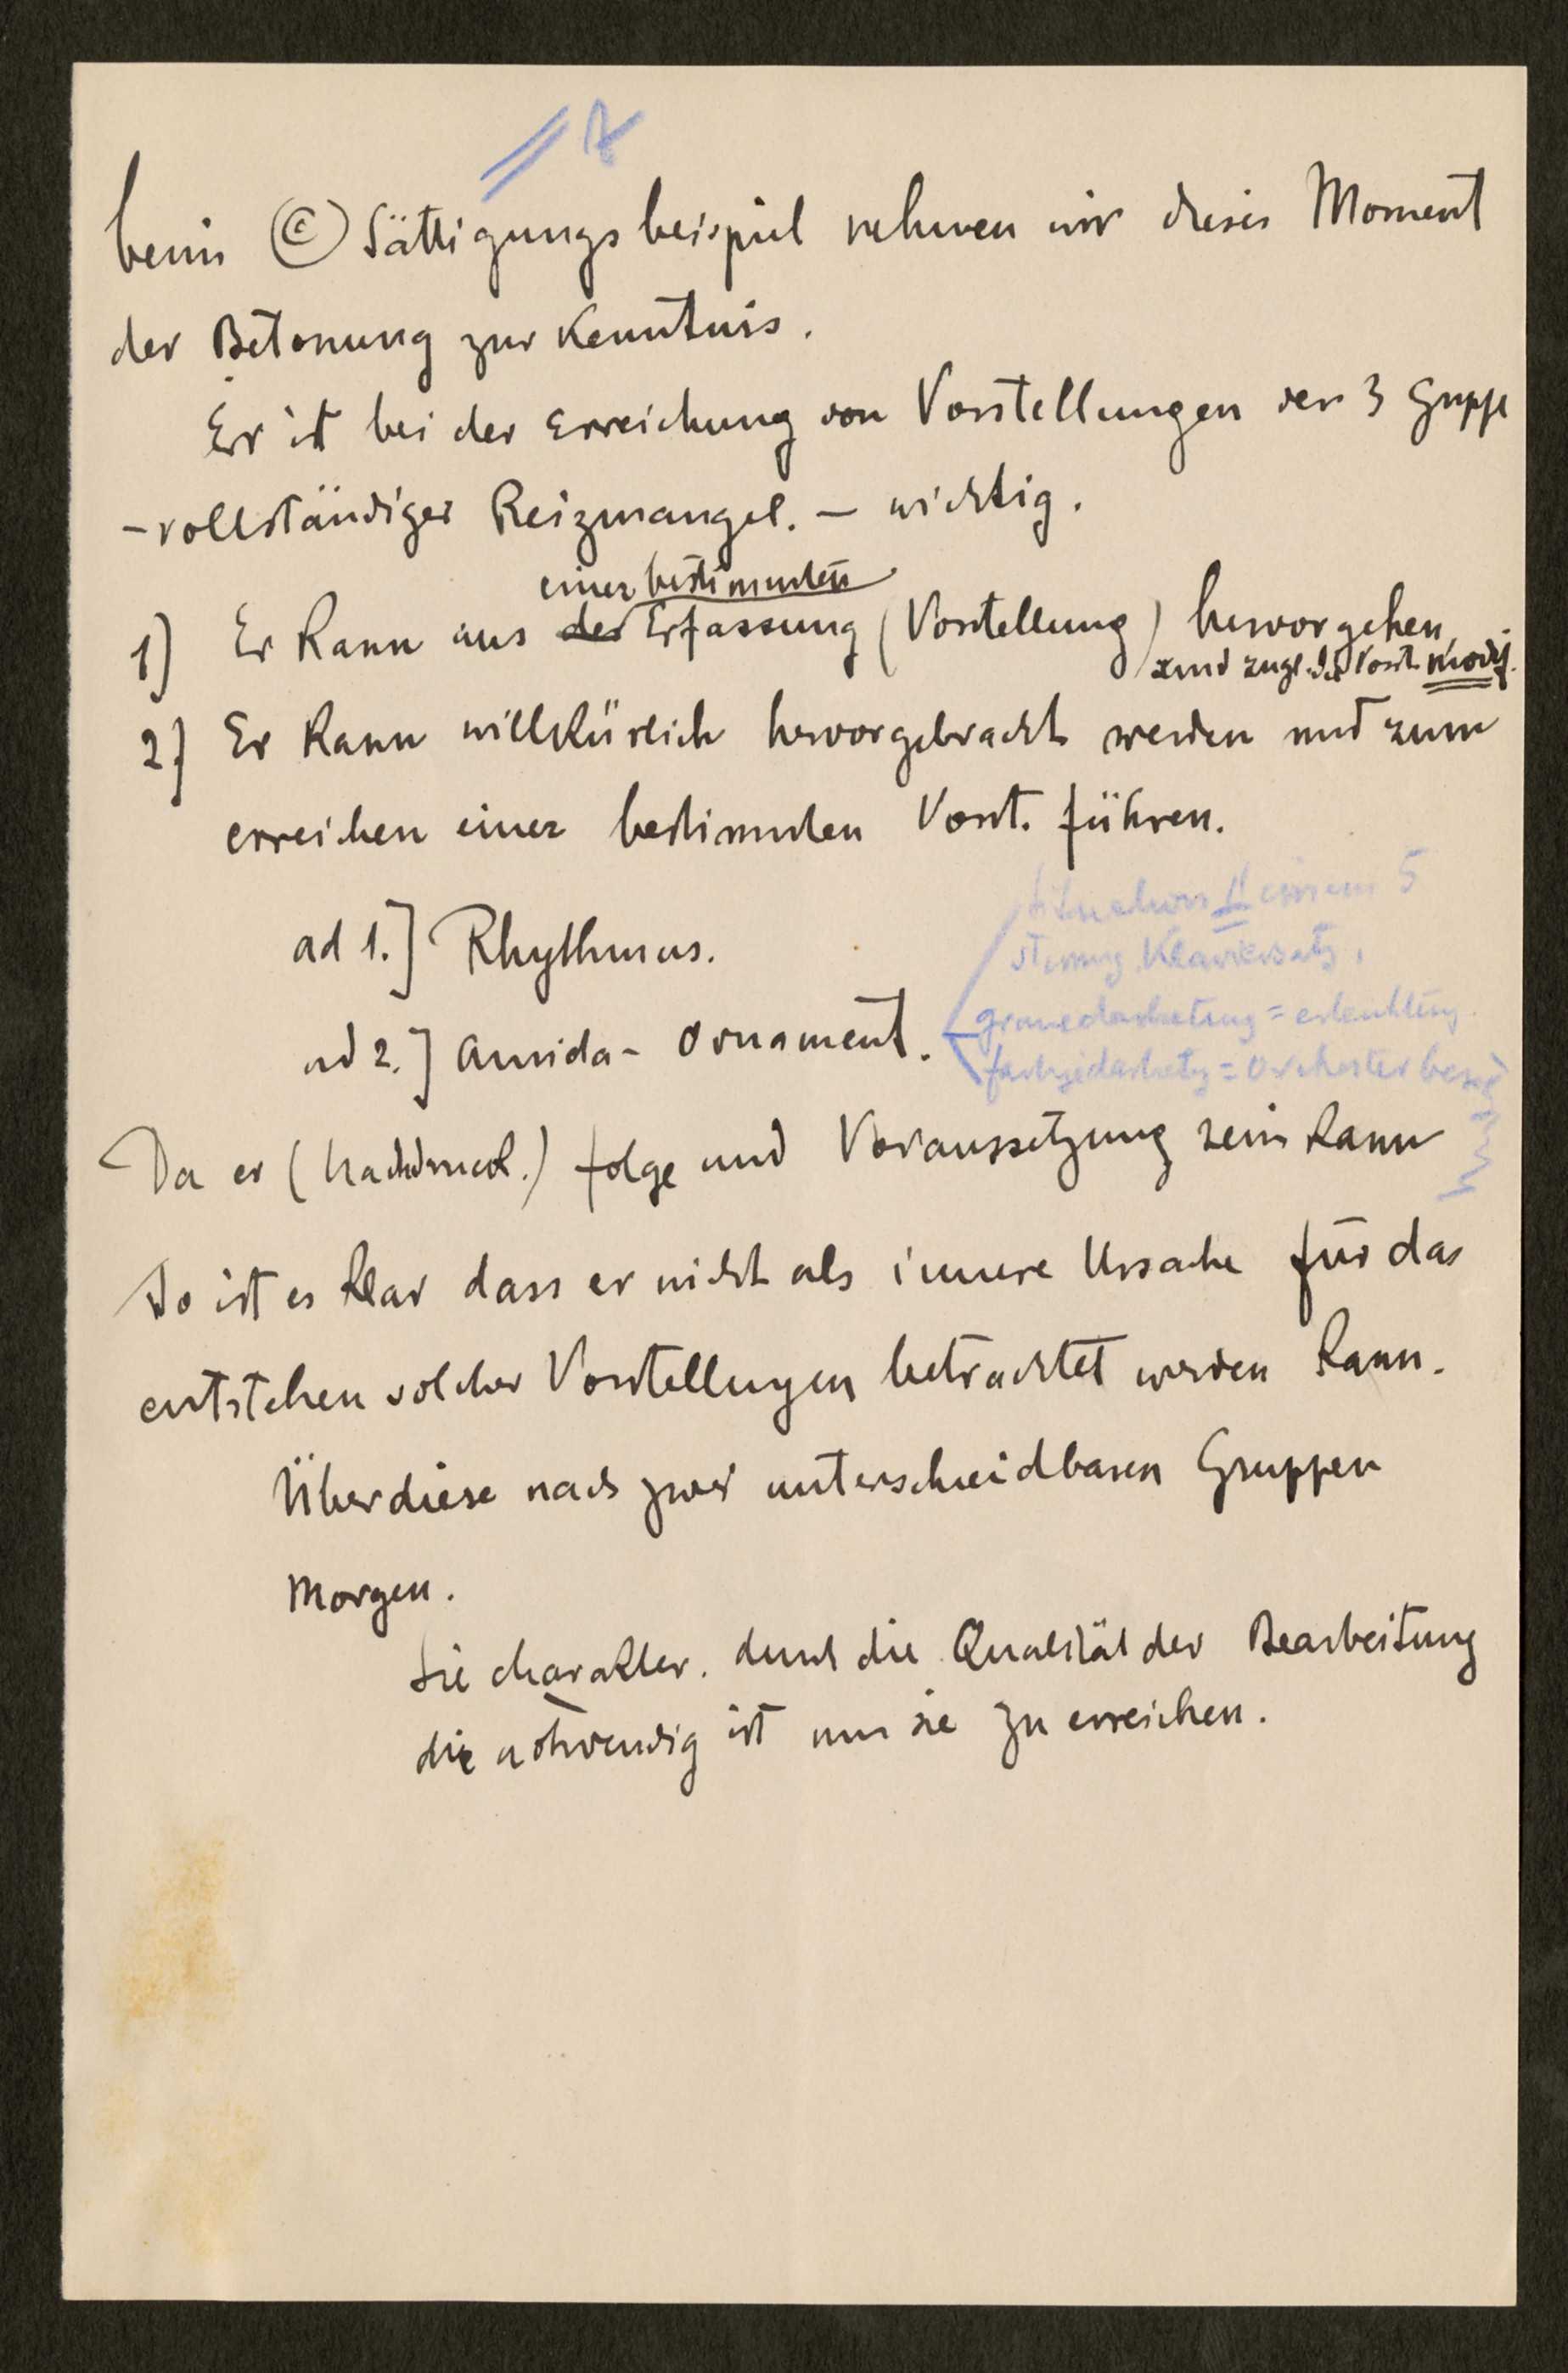 beim © Sättigungsbeispiel nehmen wir dieses Moment
der Betonung zur Kenntnis.
Er ist bei der Erreichung von Vorstellungen der 3 Gruppe
– vollständiger Reizmangel. – wichtig.
einer bestimmten
1) Er kann aus der Erfassung (Vorstellung) hervorgehen
und zugl. die Vorst. modif.
2) Er kann willkürlich hervorgebracht werden und zum
erreichen einer bestimmten Vorst. führen.
ad 1.] Rhythmus.
ad 2.] Amida- Ornament.
einem 5
stimmig Klaviersatz,
= erleuchtung.
= Orchester
Da er (Nachdruck.) folge und Voraussetzung sein kann
So ist es klar dass er nicht als innere Ursache für das
entstehen solcher Vorstellungen betrachtet werden kann.
Über diese nach zwei unterscheidbaren Gruppen
Morgen.
Sie charakter. durch die Qualität der Bearbeitung
die notwendig ist um sie zu erreichen.